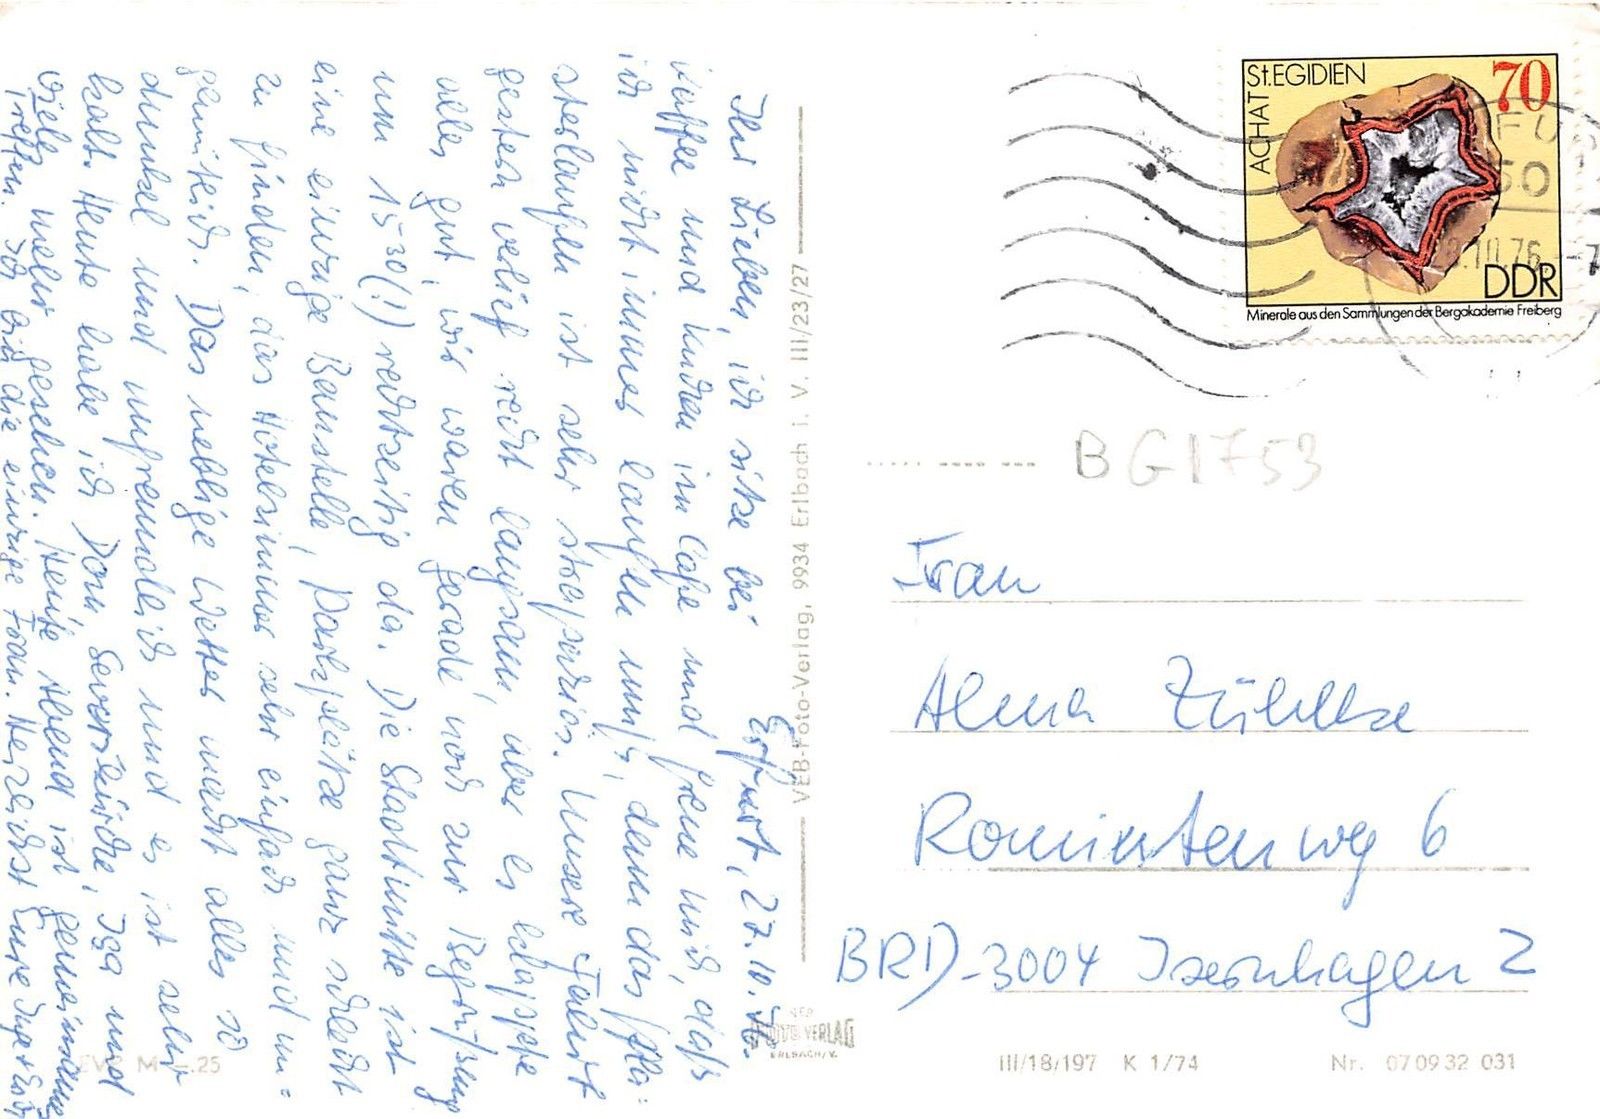 Erfurt, 27.10.76.
Ihr Lieben, ich sitze bei
Kaffee und Kuchen im Café und freue mich, daß
ich nicht immer laufen muß, denn das Pfla-
sterlaufen ist sehr strapaziös. Unsere Fahrt
gestern verlief recht langsam, aber es klappte
alles gut, wir waren gerade noch zur Begrüßung
um 15 30(!) rechtzeitig da. Die Stadtmitte ist
eine einzige Baustelle, Parkplätze ganz schlecht
zu finden, das Hotelzimmer sehr einfach und un=
gemütlich. Das neblige Wetter macht alles so
dunkel und unfreundlich und es ist sehr
kalt. Heute habe ich Dom, Severikirche, und
viel mehr gesehen. Heute Abend ist gemeinsames
Treffen. Ich bin die einzige Frau. Herzlichst Eure
VEB-Foto-Verlag, 9934 Erlbach i. V. III/23/27
EVP M -.25
VEB
FOTO-VERLAG
ERLBACH/V.
ACHAT St.EGIDIEN
70
DDR
Minerale aus den Sammlungen der Bergakademie Freiberg
.10.76.-7
BG1753
Frau
Alma Zühlke
Romintenweg 6
BRD-3004 Isernhagen 2
III/18/197 K 1/74
Nr. 070932 031